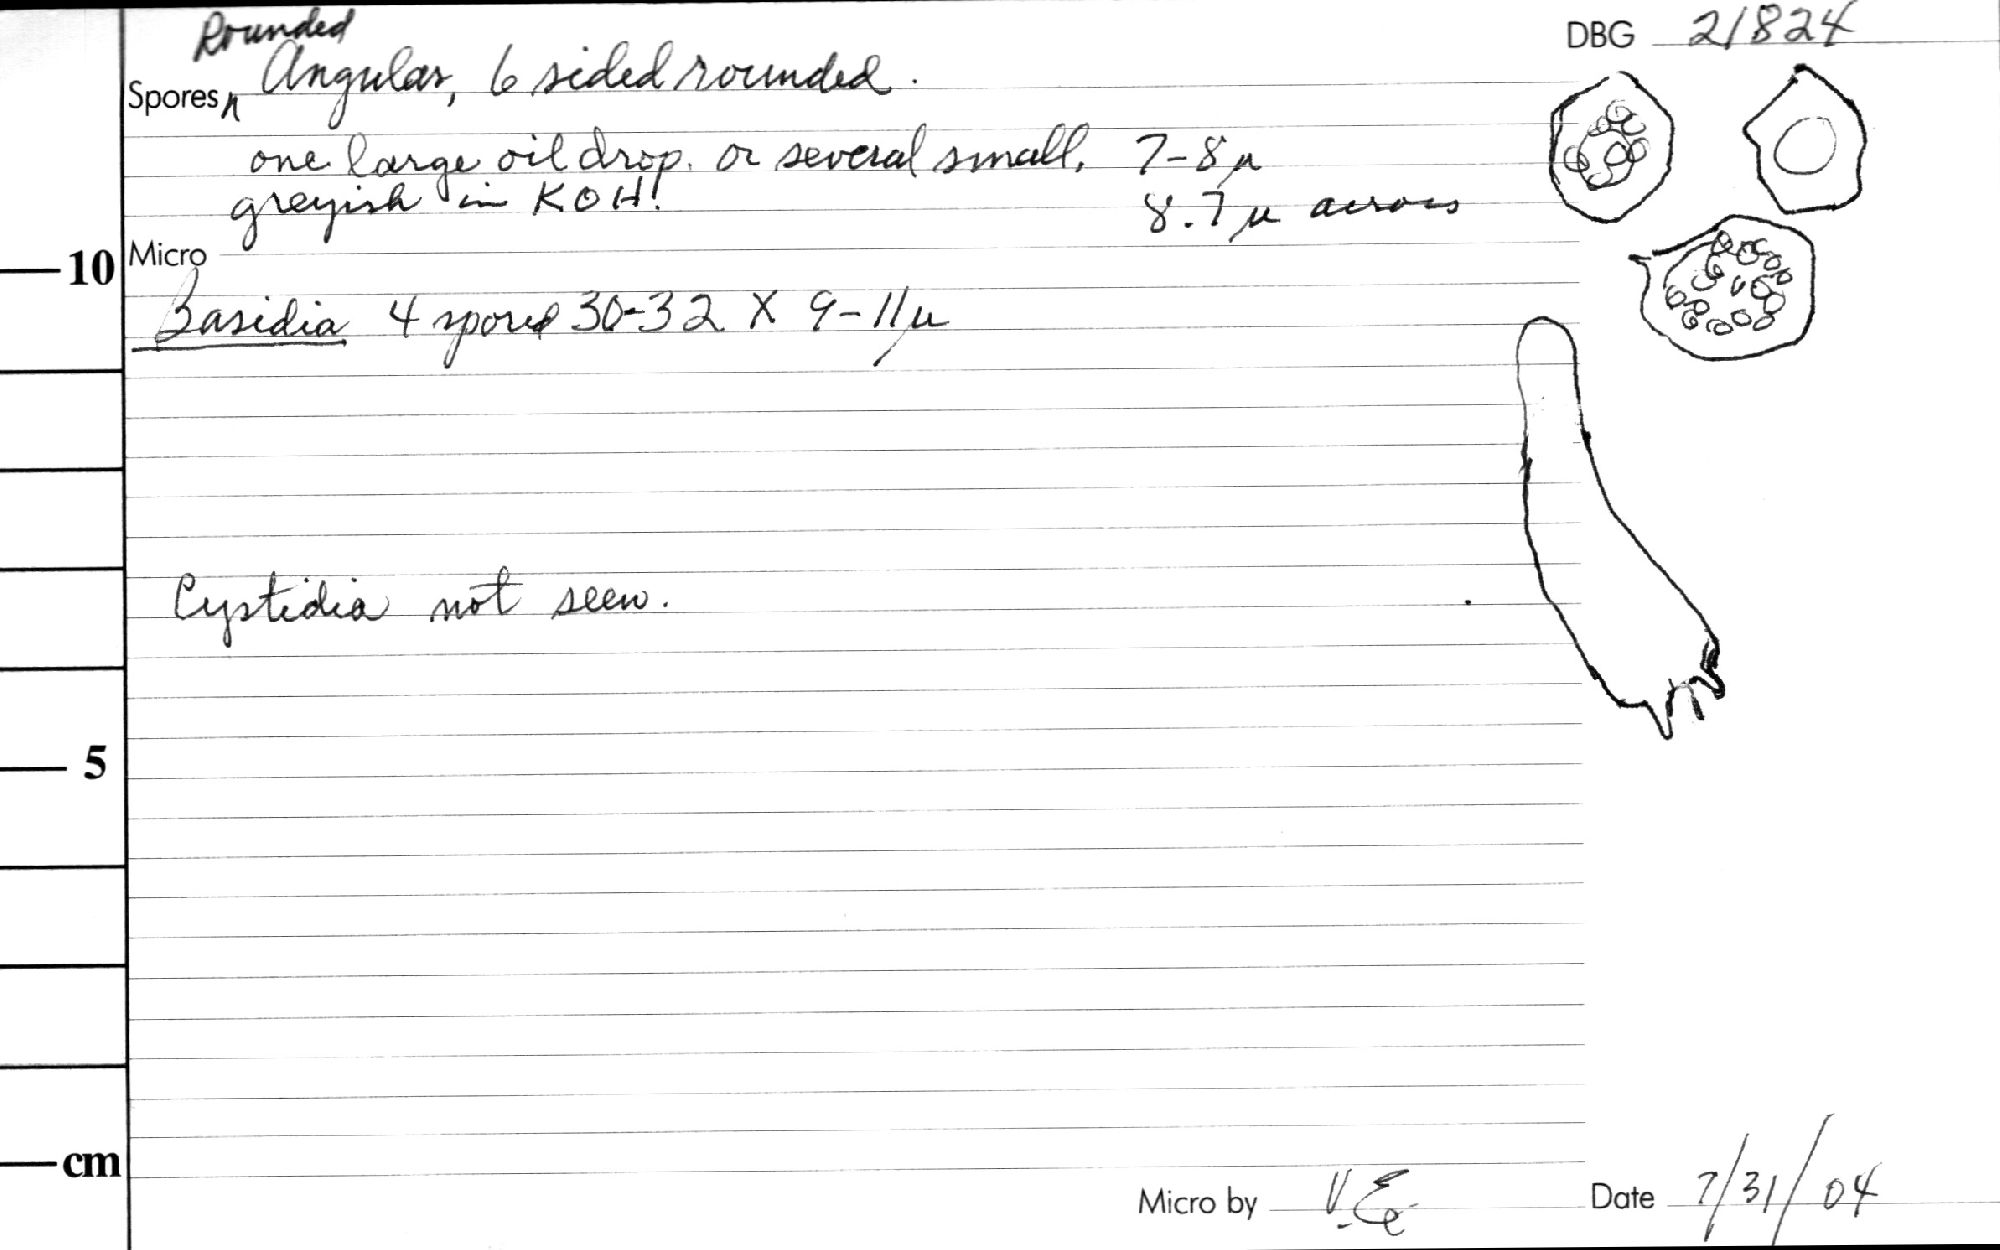 DBG 21824
Rounded
Spores ∧ Angular, 6 sided rounded.
one large oil drop. or several small. 7-8 µ
greyish in KOH! 8.7 µ across
10 Micro
Basidia 4 spored 30-32 X 9-11 µ
Cystidia not seen.
5
cm
Micro by V.E. Date 7/31/04